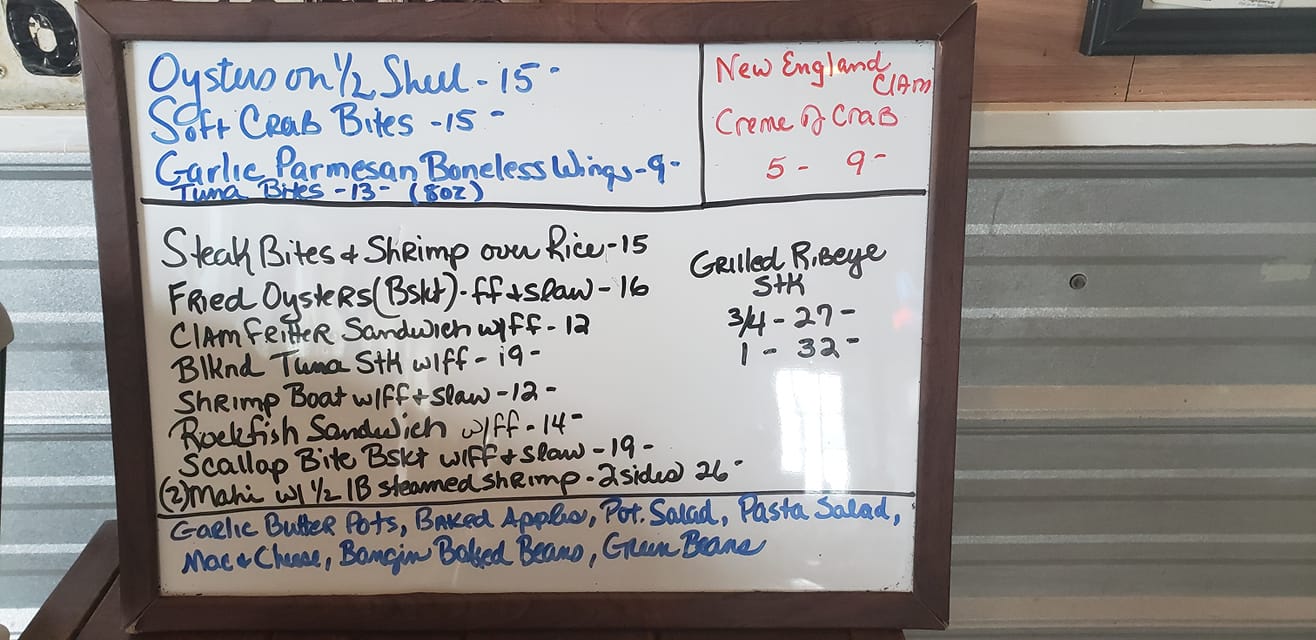 Oysters on 1/2 Shell - 15 -
Soft Crab Bites - 15 -
Garlic Parmesan Boneless Wings - 9 -
Tuna Bites - 13 - (8oz)
New England Clam
Creme of Crab
5 - 9 -
Steak Bites & Shrimp over Rice - 15
Fried Oysters (Bskt) - ff + slaw - 16
Clam Fritter Sandwich w/ff - 12
Blknd Tuna Stk w/ff - 19 -
Shrimp Boat w/ff + slaw - 12 -
Rockfish Sandwich w/ff - 14 -
Scallop Bite Bskt w/ff + slaw - 19 -
(2) Mahi w/ 1/2 lB steamed shrimp - 2 sides 26 -
Grilled Ribeye
Stk
3/4 - 27 -
1 - 32 -
Garlic Butter Pots, Baked Apples, Pot. Salad, Pasta Salad,
Mac & Cheese, Bangin Baked Beans, Green Beans